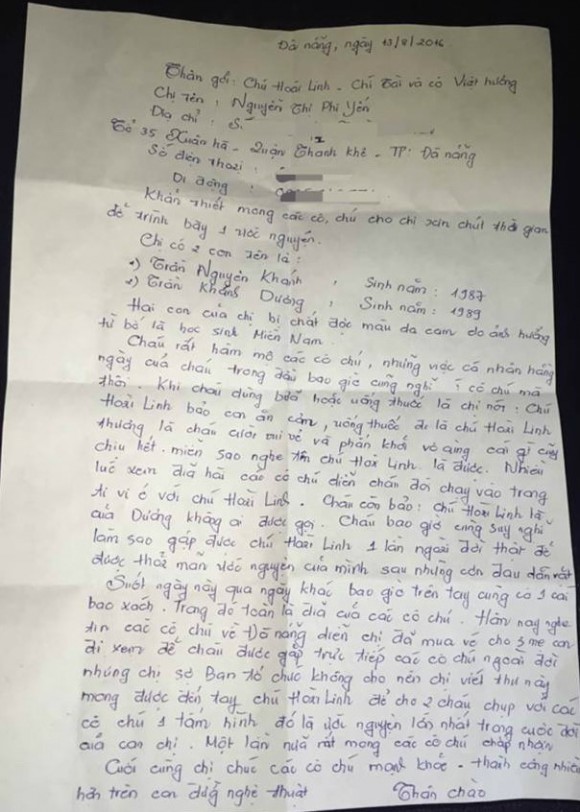 Đà nẵng, ngày 13/8/2016
Thân gởi: Chú Hoài Linh - Chí Tài và cô Việt hương
Chị tên : Nguyễn Thị Phi Yến
Địa chỉ :
Tổ 35 Xuân hà - Quận Thanh khê - TP: Đà nẵng
Số điện thoại :
Di động :
Khẩn thiết mong các cô, chú cho chị xin chút thời gian
để trình bày 1 ước nguyện.
Chị có 2 con tên là :
1) Trần Nguyên Khanh , Sinh năm : 1987
2) Trần Khánh Dương , Sinh năm : 1989
Hai con của chị bị chất độc màu da cam do ảnh hưởng
từ bố là học sinh Miền Nam.
Cháu rất hâm mộ các cô chú, những việc cá nhân hằng
ngày của cháu trong đầu bao giờ cũng nghĩ cô chú mà
thôi. Khi cháu dùng bữa hoặc uống thuốc là chị nói : Chú
Hoài Linh bảo con ăn cơm, uống thuốc đi là chú Hoài Linh
thương là cháu cười vui vẻ và phấn khởi vô cùng cái gì cũng
chịu hết. miễn sao nghe tên chú Hoài Linh là được. Nhiều
lúc xem đĩa hài các cô chú diễn cháu đòi chạy vào trong
ti vi ở với chú Hoài Linh. Cháu còn bảo: chú Hoài Linh là
của Dương không ai được gọi. Cháu bao giờ cũng suy nghĩ
làm sao gặp được chú Hoài Linh 1 lần ngoài đời thật để
được thoả mãn ước nguyện của mình sau những cơn đau dằn vặt
Suốt ngày này qua ngày khác bao giờ trên tay cũng có 1 cái
bao xách. Trong đó toàn là đĩa của các cô chú. Hôm nay nghe
tin các cô chú về Đà nẵng diễn chị đã mua vé cho 3 mẹ con
đi xem để cháu được gặp trực tiếp các cô chú ngoài đời
nhưng chị sợ Ban tổ chức không cho nên chị viết thư này
mong được đến tay chú Hoài Linh để cho 2 cháu chụp với các
cô chú 1 tấm hình đó là ước nguyện lớn nhất trong cuộc đời
của con chị. Một lần nữa rất mong các cô chú chấp nhận
Cuối cùng chị chúc các cô chú mạnh khoẻ - thành công nhiều
hơn trên con đường nghệ thuật Thân chào